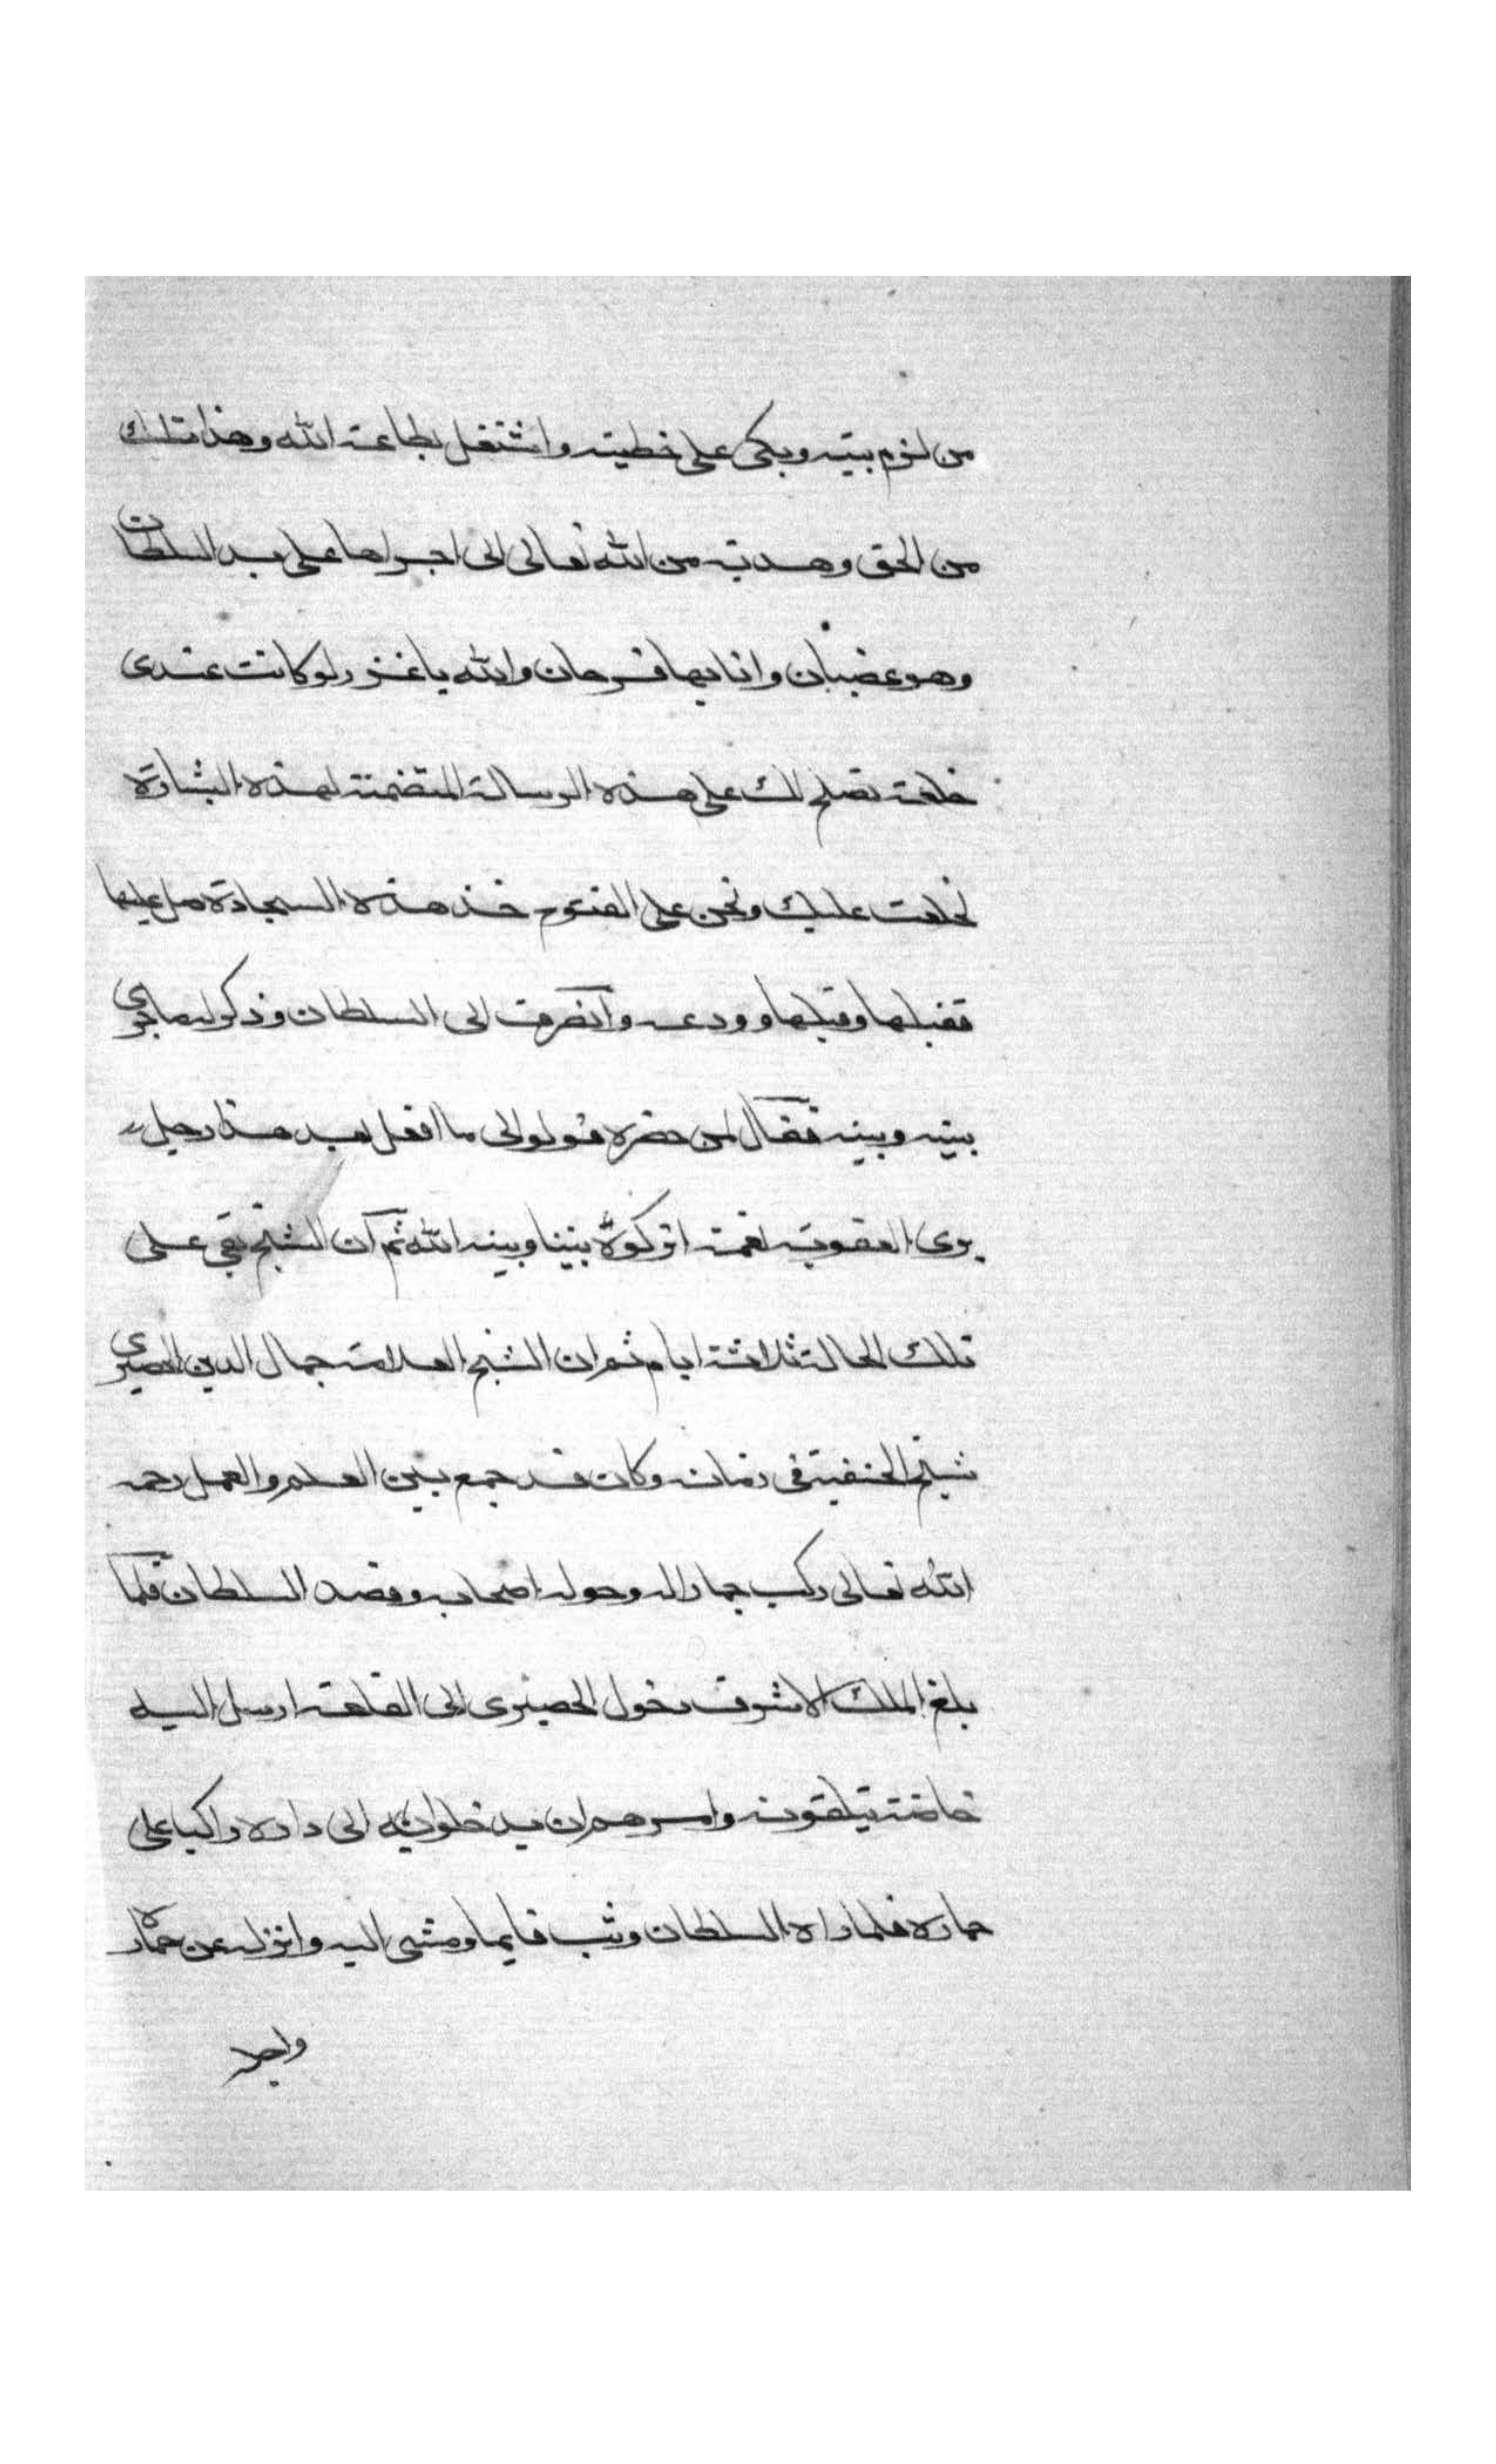 من لزم بيته وبكى على خطيته واشتغل بطاعة الله وهذا تسليك
من الحق وهدية من الله تعالى الى اجراها على يد السلطان
وهو غضبان وانا بها فرحان والله يا غرز لو كانت عندى
خلعة تصلح لك على هذه الرسالة المتضمنة لهذه البشارة
لخلعت عليك ونحن على الفتوح خذ هذه السجادة صل عليها
فقبلها وقبلها وودعه وانصرف الى السلطان وذكر له ما جرى
بينه وبينه فقال لمن حضره قولو لى ما افعل بعد هذا رجل
يرى العقوبة نعمة اتركوه بيننا وبينه الله ثم ان الشيخ بقى على
تلك الحالة ثلاثة ايام ثم ان الشيخ العلامة جمال الدين الحصيرى
شيخ الحنفية فى زمانه وكان قد جمع بين العلم والعمل رحمه
الله تعالى ركب حمارا له وحوله اصحابه وقصد السلطان فلما
بلغ الملك الاشرف دخول الحصيرى الى القلعة ارسل اليه
خاصته يتلقونه وامرهم ان يدخلوا به الى داره راكبا على
حماره فلما راه السلطان وثب قايما ومشى اليه وانزله عن حماره